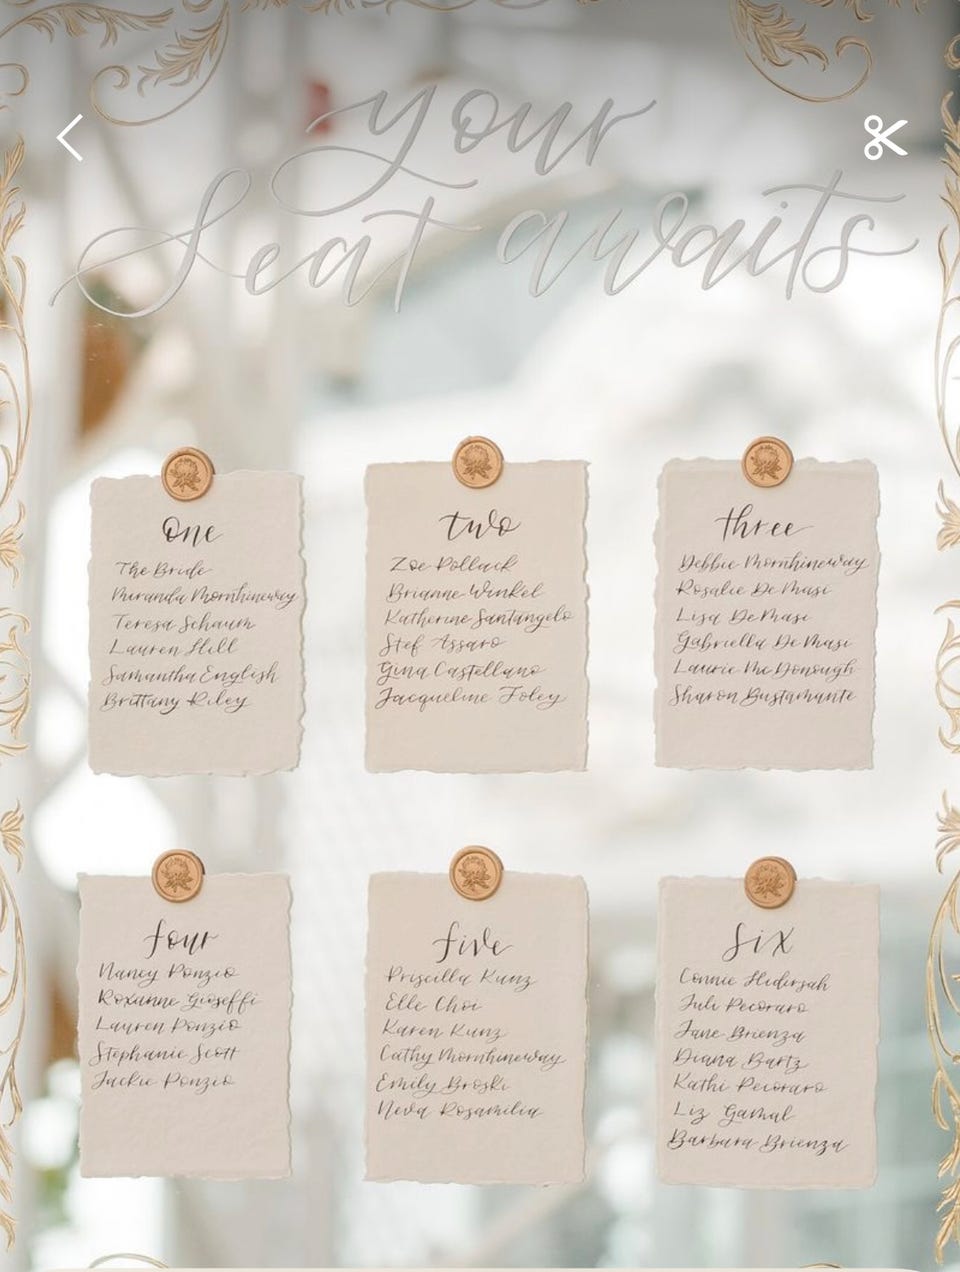 your
Seat awaits
one
The Bride
Miranda Mornhineway
Teresa Schaum
Lauren Hill
Samantha English
Brittany Riley
two
Zoe Pollack
Brianne Winkel
Katherine Santangelo
Stef Assaro
Gina Castellano
Jacqueline Foley
three
Debbie Mornhineway
Rosalie De Masi
Lisa DeMasi
Gabriella De Masi
Laurie McDonough
Sharon Bustamante
four
Nancy Ponzio
Roxanne Gioseffi
Lauren Ponzio
Stephanie Scott
Jackie Ponzio
five
Priscilla Kunz
Elle Choi
Karen Kunz
Cathy Mornhineway
Emily Broski
Neva Rosamilia
six
Connie
Juli Pecoraro
Jane Brienza
Diana Bartz
Kathi Pecoraro
Liz Gamal
Barbara Brienza